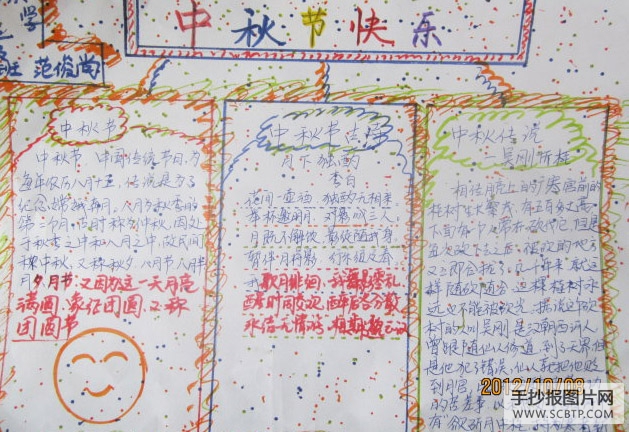 中秋节快乐
学
班 范俊尚
中秋节
中秋节,中国传统节日,为
每年农历八月十五,传说是为了
纪念嫦娥奔月,八月为秋季的
第二个月,古时称为仲秋,因处
于秋季之中和八月之中,故民间
称中秋,又称秋夕,八月节,八月半
月夕,月节;又因为这一天月亮
满圆,象征团圆,又称
团圆节
中秋节古诗
月下独酌
李白
花间一壶酒,独酌无相亲
举杯邀明月,对影成三人
月既不解饮,影徒随我身
暂伴月将影,行乐须及春
我歌月徘徊,我舞影零乱
醒时同交欢,醉后各分散
永结无情游,相期邈云汉
中秋传说
—吴刚折桂
相传月亮上的广寒宫前的
桂树生长繁茂,有五百多丈高
下边有个人常在砍伐它,但是
每次砍下去之后,被砍的地方
又立即合拢了,几千年来,就这
样随砍随合,这棵桂树永
远也不能被砍光。据说这个砍
树的人叫吴刚,是汉朝西河人,
曾跟随仙人修道,到了天界,但
是他犯了错误,仙人就把他贬
到月宫,
的苦差事,以
有"欲斫月中桂,
2012/10/09
手抄报图片网
WWW.SCBTP.COM